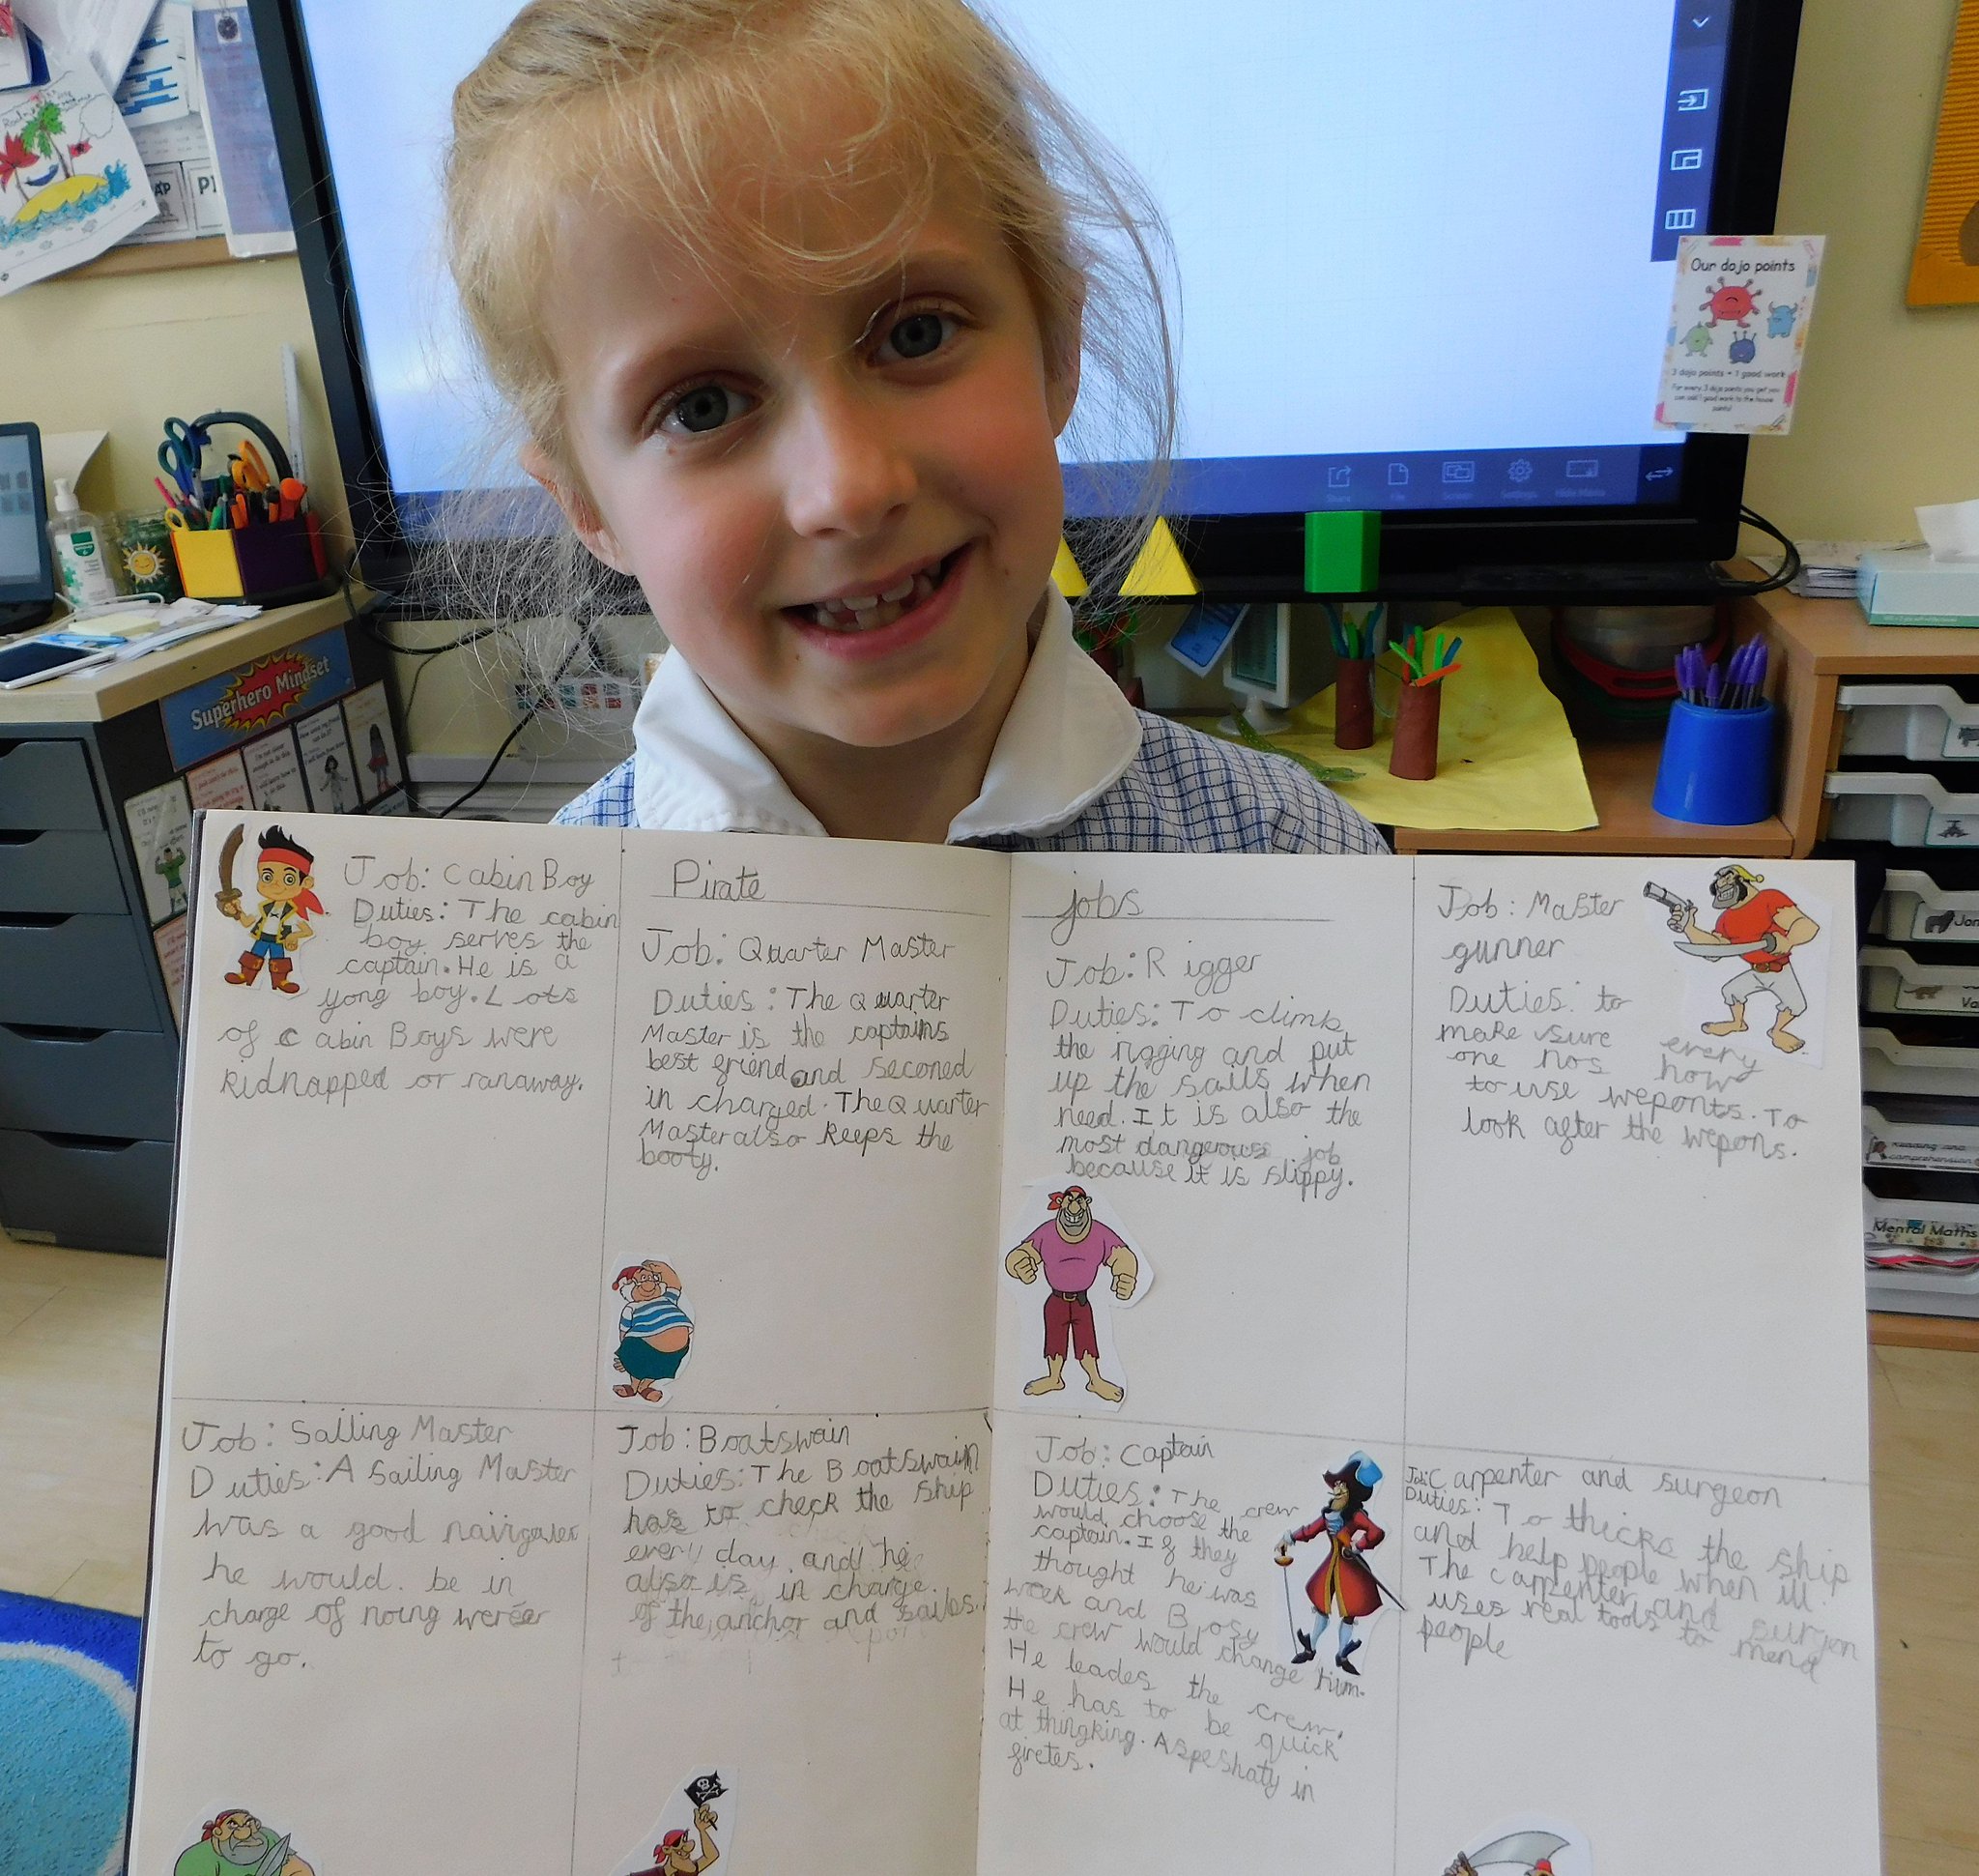 Our dojo points
3 dojo points = 1 good work
For every 3 dojo points you get you
can add 1 good work to the house
points!
Superhero Mindset
Pirate jobs
Job: Cabin Boy
Duties: The cabin
boy serves the
captain. He is a
yong boy. Lots
of cabin Boys were
kidnapped or ranaway.
Job: Quarter Master
Duties: The Quarter
Master is the captains
best friend and seconed
in charged. The Quarter
Master also keeps the
booty.
Job: Rigger
Duties: To climb
the rigging and put
up the sails when
need. It is also the
most dangerous job
because it is slippy.
Job: Master
gunner
Duties: to
make sure every
one nos how
to use weponts. To
look after the wepons.
Job: Sailing Master
Duties: A Sailing Master
was a good
he would be in
charge of noing
to go.
Job: Boatswain
Duties: The Boatswain
has to check the ship
every day and he
also is in charge
of the anchor and sailes.
Job: Captain
Duties: The crew
would choose the
captain. If they
thought he was
week and Bosy
the crew would change him.
He leades the crew.
He has to be quick
at thingking. Aspeshaty in
firetes.
Job: Carpenter and surgeon
Duties: To thicks the ship
and help people when ill.
The carpenter and surgon
uses real tools to mend
people
Mental Maths